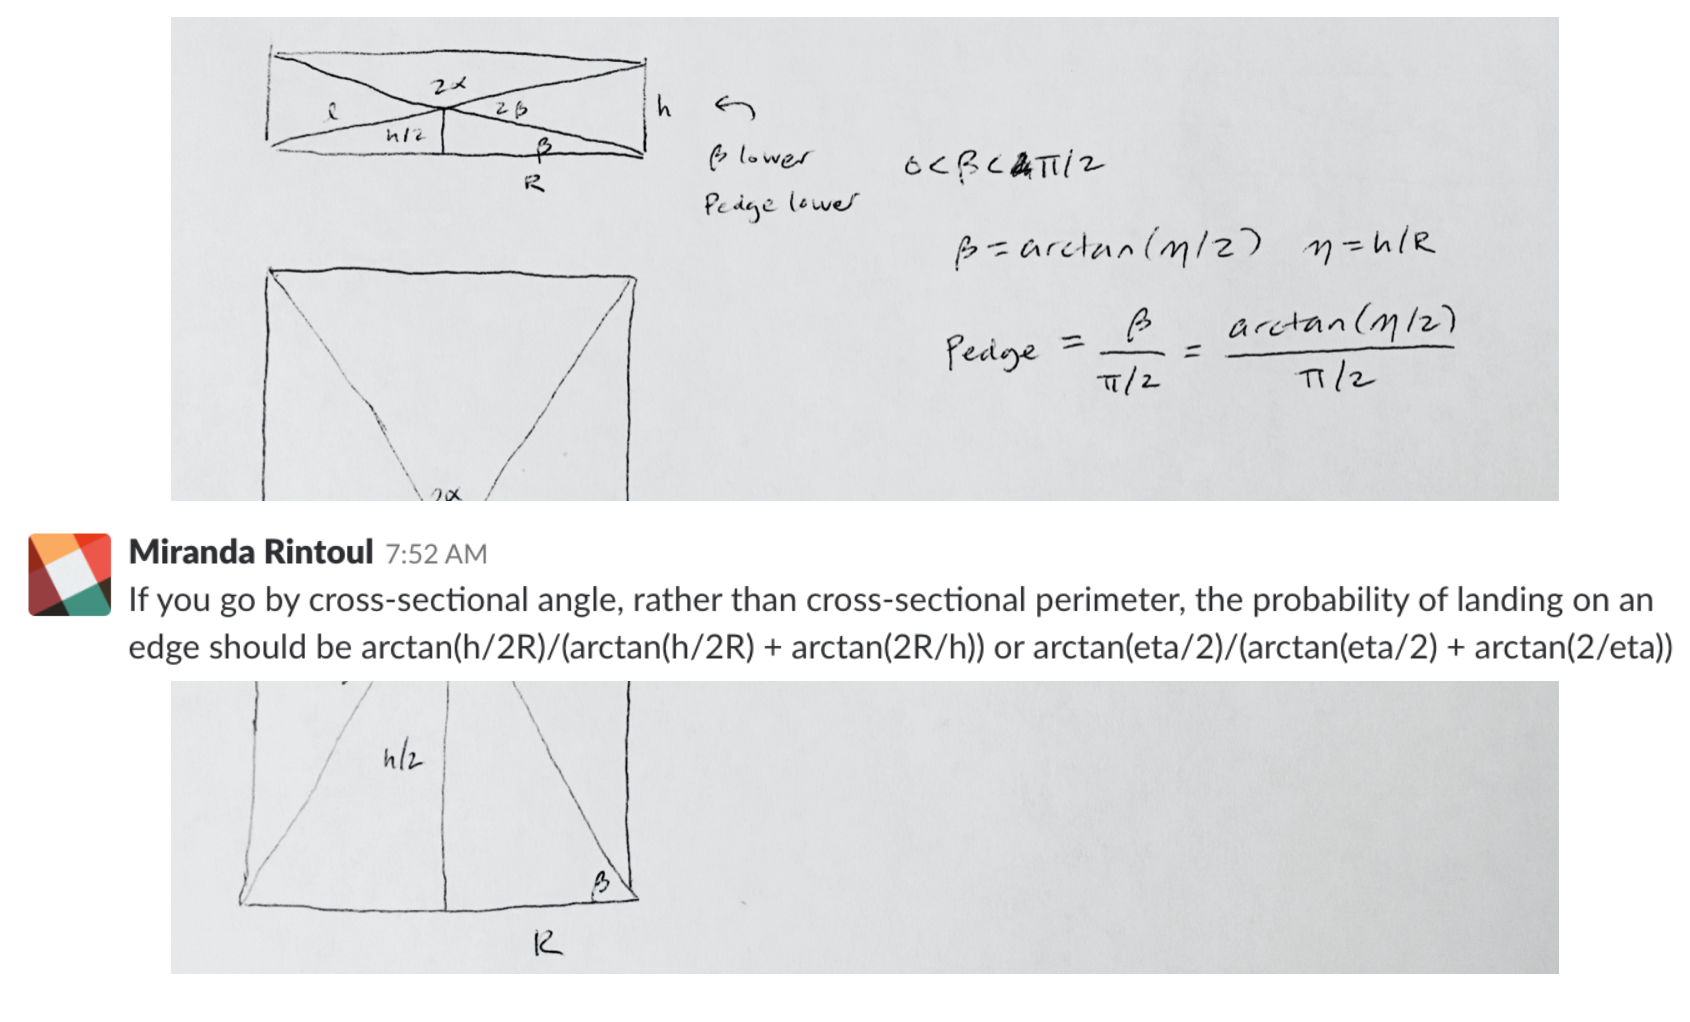 2α
l
2β
h
h/2
β
R
β lower
Pedge lower
0<β<π/2
β = arctan(η/2) η = h/R
Pedge = β / π/2 = arctan(η/2) / π/2
2α
Miranda Rintoul 7:52 AM
If you go by cross-sectional angle, rather than cross-sectional perimeter, the probability of landing on an
edge should be arctan(h/2R)/(arctan(h/2R) + arctan(2R/h)) or arctan(eta/2)/(arctan(eta/2) + arctan(2/eta))
h/2
β
R